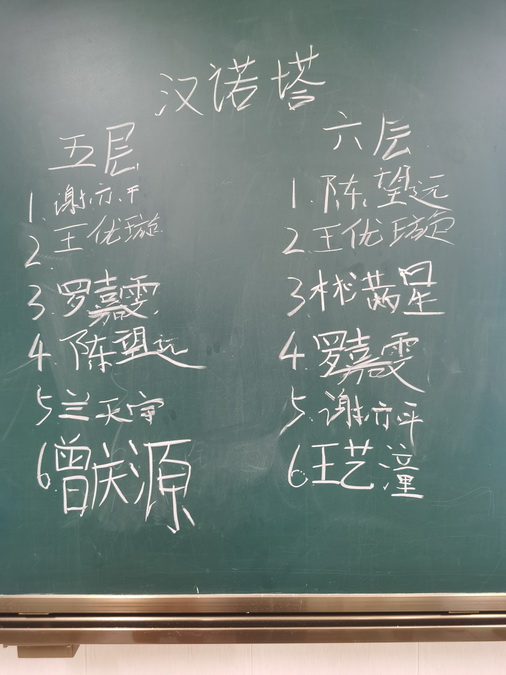 汉诺塔
五层
1. 谢亦平
2. 王优璇
3. 罗嘉雯
4. 陈望远
5 兰天宇
6. 曾庆源
六层
1. 陈望远
2. 王优璇
3. 林茜星
4. 罗嘉雯
5. 谢亦平
6. 王艺潼